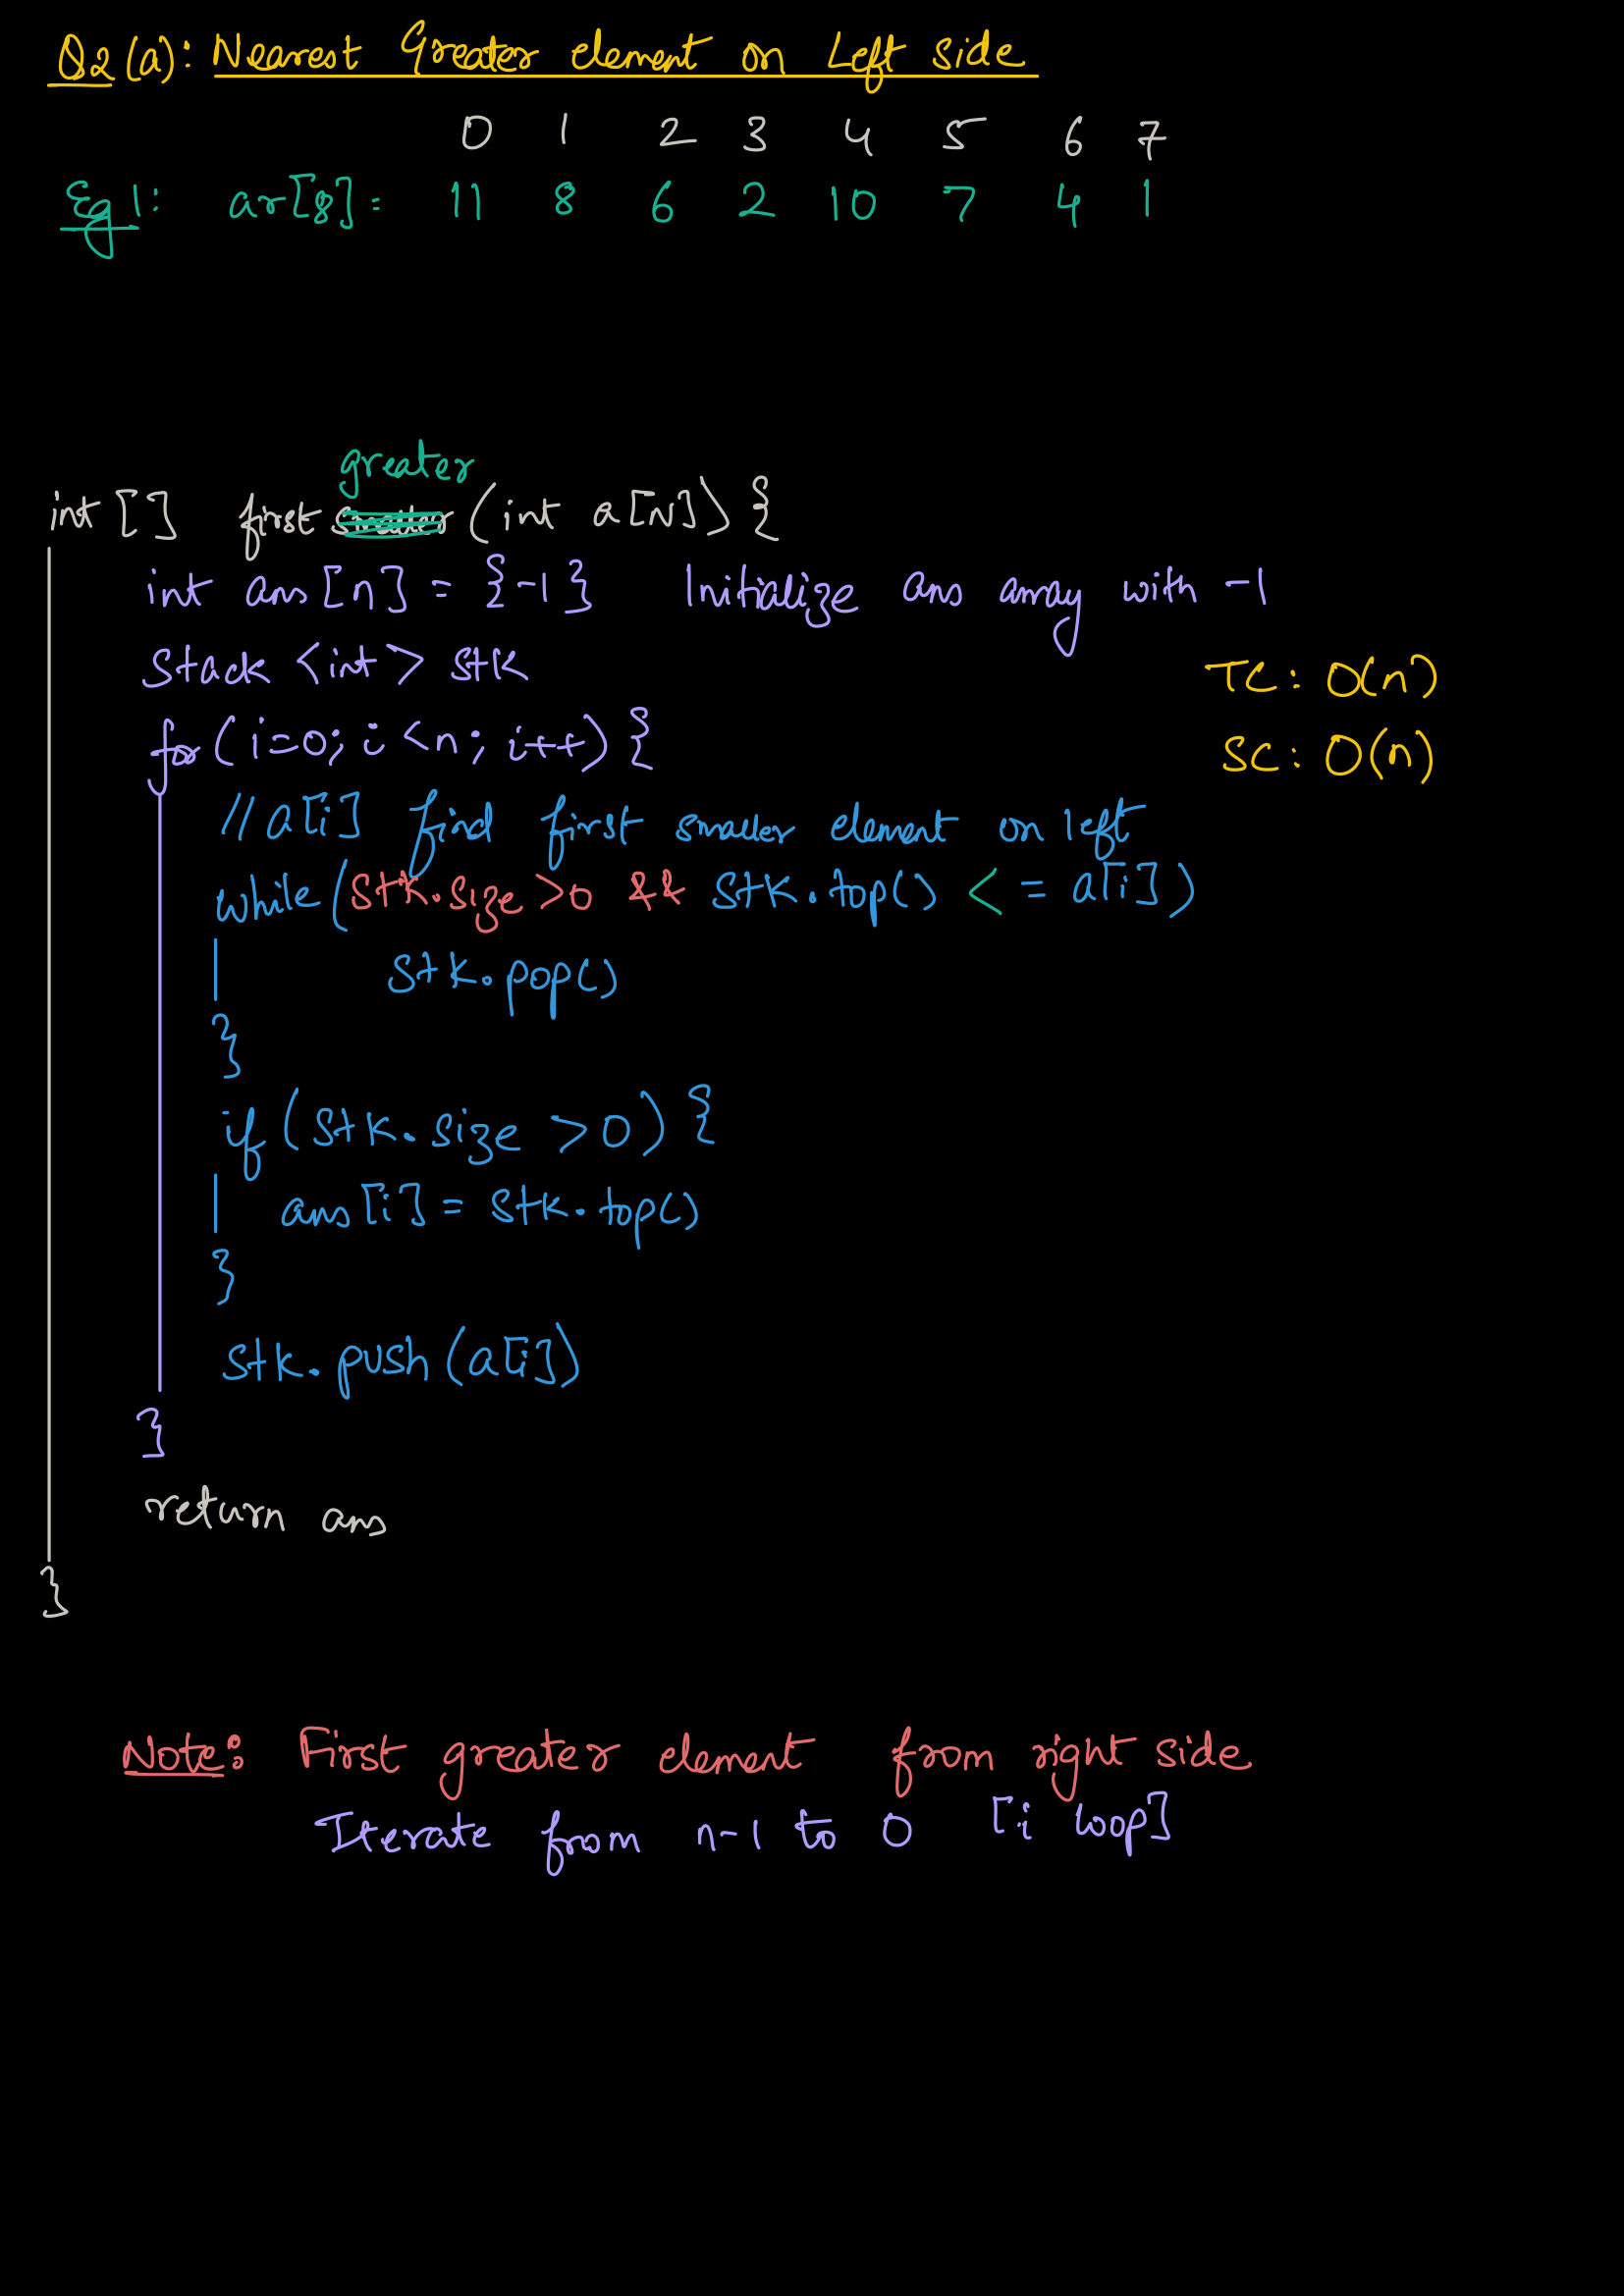 Q2(a): Nearest Greater element on Left side
0 1 2 3 4 5 6 7
Eg1: ar[8]= 11 8 6 2 10 7 4 1
greater
int [] first smaller (int a[N]) {
int ans[n] = {-1} Initialize ans array with -1
Stack <int> stk
TC: O(n)
for (i=0; i<n; i++) {
SC: O(n)
// a[i] find first smaller element on left
while (stk.size >0 && stk.top() <= a[i])
stk.pop()
}
if (stk.size >0) {
ans[i] = stk.top()
}
stk.push(a[i])
}
return ans
}
Note: First greater element from right side
Iterate from n-1 to 0 [i loop]